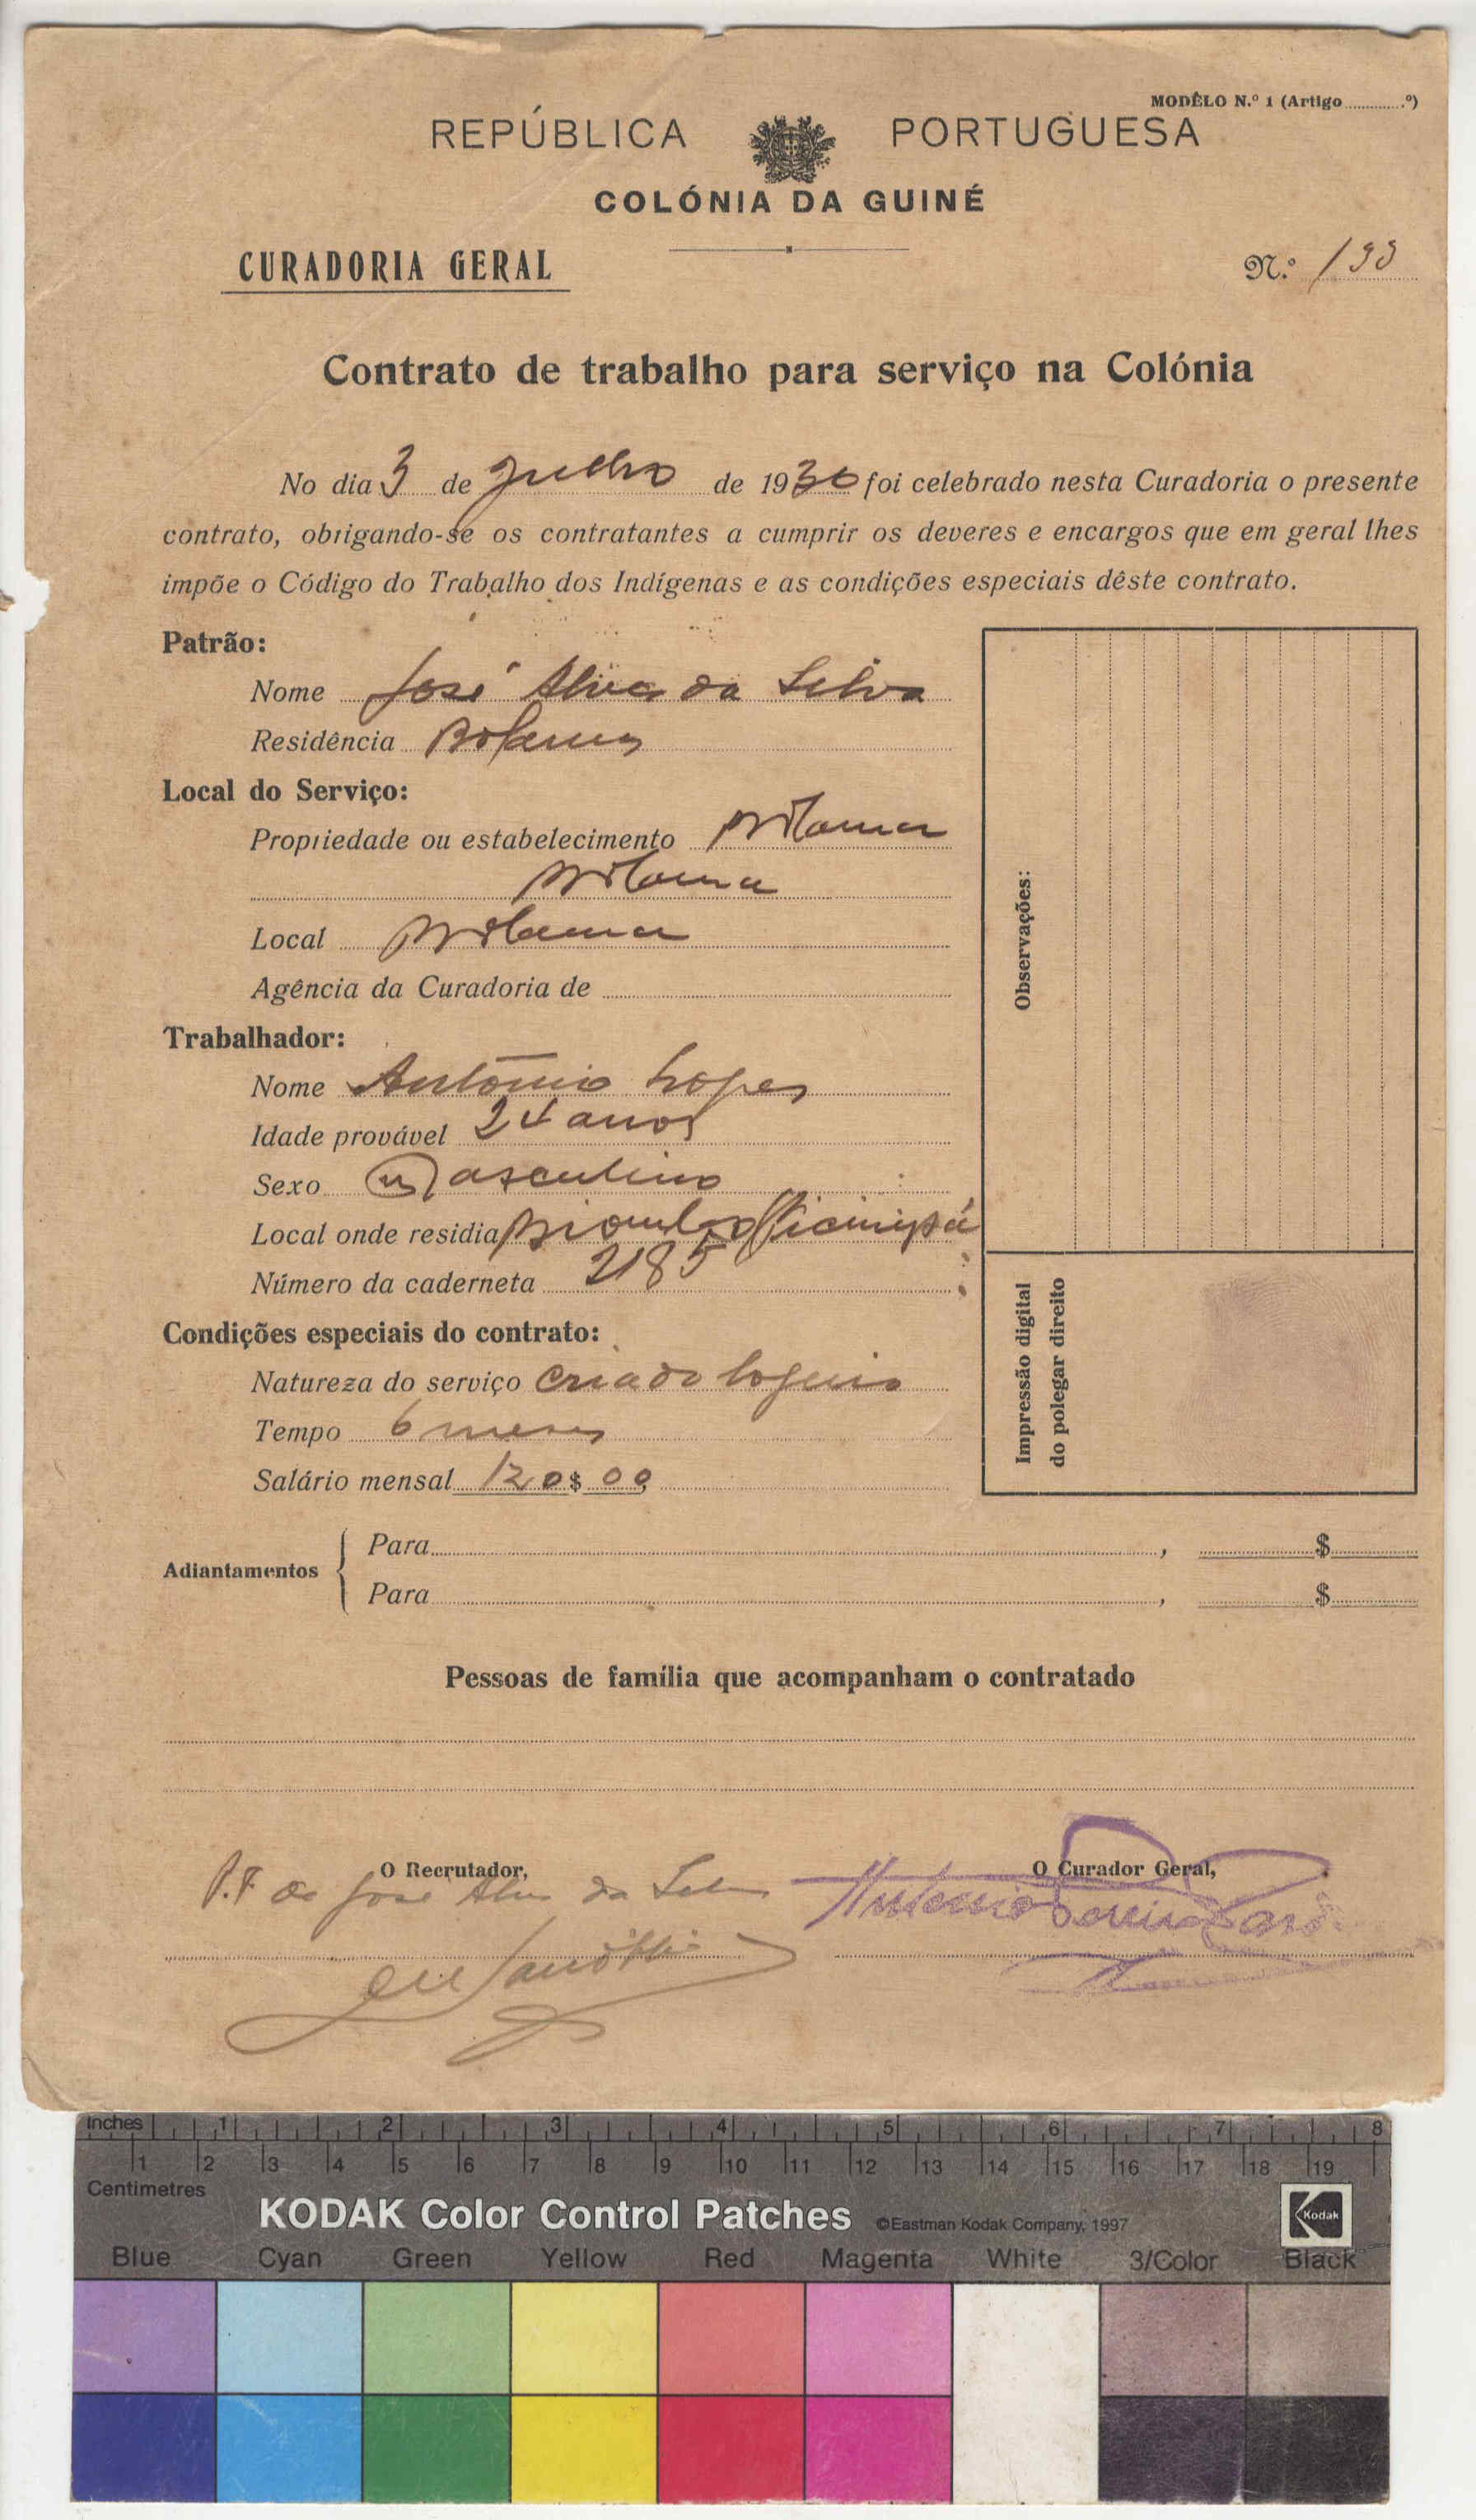 MODÊLO N.º 1 (Artigo ............º)
REPÚBLICA PORTUGUESA
COLÓNIA DA GUINÉ
CURADORIA GERAL
N.º 133
Contrato de trabalho para serviço na Colónia
No dia 3 de Julho de 1930 foi celebrado nesta Curadoria o presente
contrato, obrigando-se os contratantes a cumprir os deveres e encargos que em geral lhes
impõe o Código do Trabalho dos Indígenas e as condições especiais dêste contrato.
Patrão:
Nome José Alves da Silva
Residência Bolama
Local do Serviço:
Propriedade ou estabelecimento Bolama
Bolama
Local Bolama
Agência da Curadoria de
Trabalhador:
Nome António Lopes
Idade provável 24 anos
Sexo Masculino
Local onde residia
Número da caderneta 2185
Condições especiais do contrato:
Natureza do serviço criado
Tempo 6 meses
Salário mensal 120$00
Observações:
Impressão digital
do polegar direito
Adiantamentos
Para , $
Para , $
Pessoas de família que acompanham o contratado
O Recrutador,
O Curador Geral,
José Alves da Silva
Antonio Pereira
Inches 1 2 3 4 5 6 7 8
1 2 3 4 5 6 7 8 9 10 11 12 13 14 15 16 17 18 19
Centimetres
KODAK Color Control Patches ©Eastman Kodak Company, 1997 Kodak
Blue Cyan Green Yellow Red Magenta White 3/Color Black